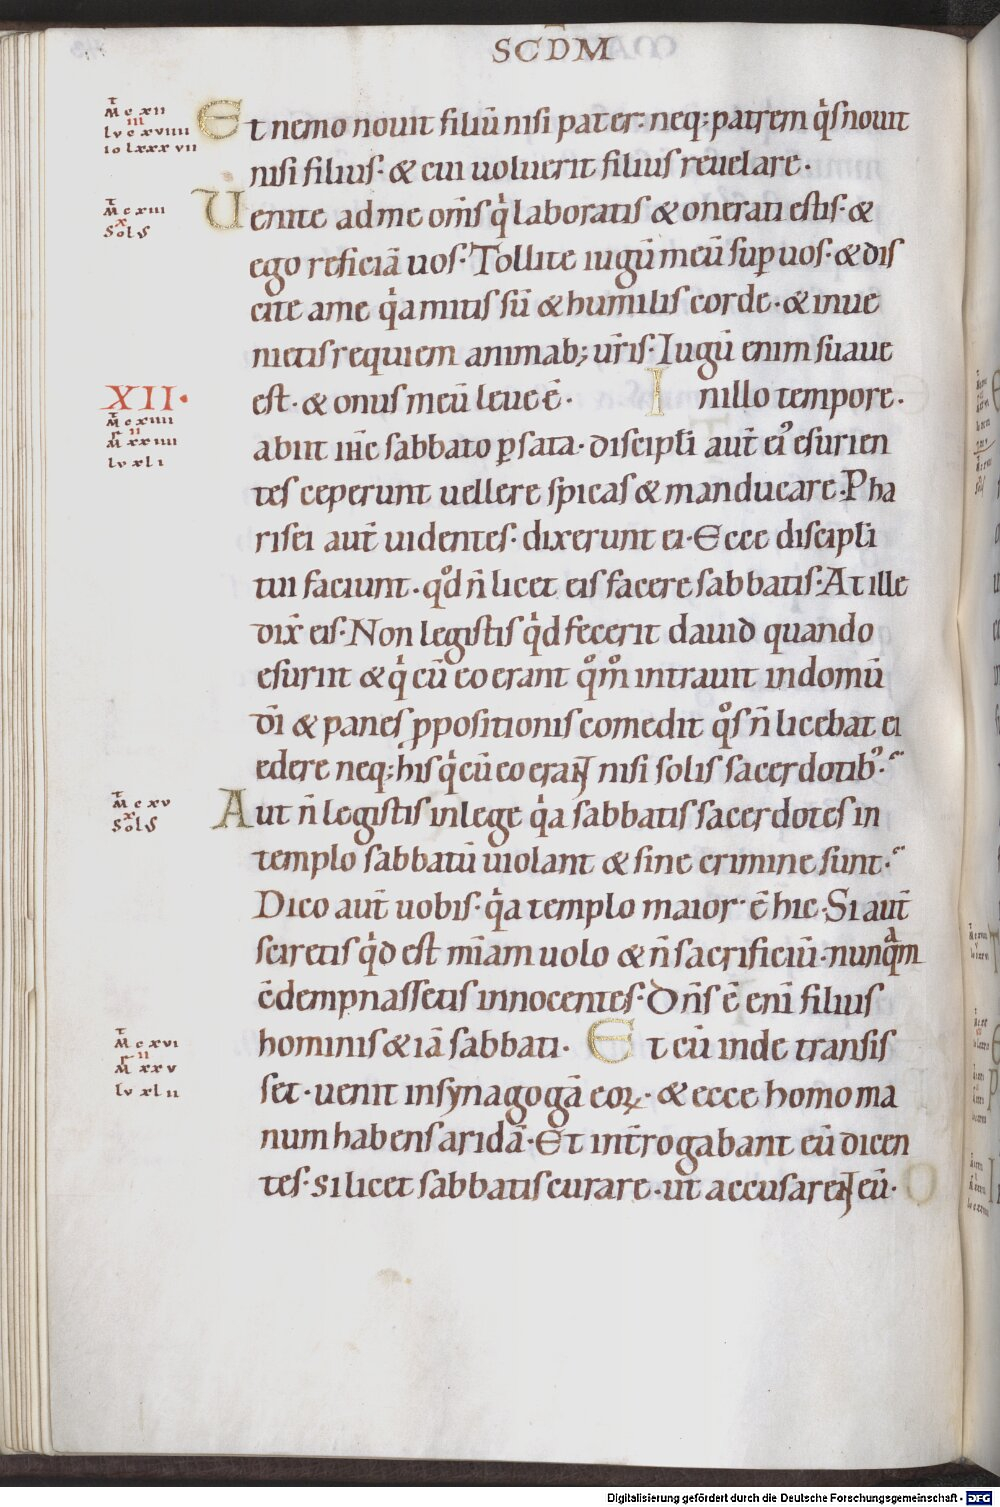 SCD̄M
M̄ c xii
iii
lv c xviiii
io lxxx vii
Et nemo nouit filiū nisi pater· neq; patrem qͥs nouit
nisi filius· & cui uoluerit filius reuelare·
M̄ c xiii
x
Solꝰ
Uenite ad me om̄s qͥ laboratis & onerati estis· &
ego reficiā uos· Tollite iugū meū suꝑ uos· & dis
cite a me qͥa mitis sū & humilis corde· & inue
nietis requiem animab; ur̄is· Iugū enim suaue
XII·
est· & onus meū leue ē· In illo tempore·
M̄ c xiiii
ii
M̄ xx iiii
lv xl i
abiit ih̄c sabbato ꝑ sata· discipl̄i aut̄ eiꝰ esurien
tes ceperunt uellere spicas & manducare· Pha
risei aut̄ uidentes· dixerunt ei· Ecce discipl̄i
tui faciunt· qͦd n̄ licet eis facere sabbatis· At ille
dix̄ eis· Non legistis qͥd fecerit dauid quando
esuriit & qͥ cū eo erant qͦm̊ intrauit in domū
dī & panes ꝓpositionis comedit qͦs n̄ licebat ei
edere neq; his qͥ cū eo erant nisi solis sacerdotibꝰ·
M̄ c xv
x
Solꝰ
Aut n̄ legistis in lege qͥa sabbatis sacerdotes in
templo sabbatū uiolant & sine crimine sunt·
Dico aut̄ uobis· qͥa templo maior ē hic· Si aut̄
sciretis qͥd est mīam uolo & n̄ sacrificiū· nunqᷓm
c̄dempnassetis innocentes· Dn̄s ē enī filius
M̄ c xvi
ii
M̄ xx v
lv xl ii
hominis & iā sabbati· Et cū inde transis
set· uenit in synagogā eoꝝ· & ecce homo ma
num habens aridā· Et int̄rogabant eū dicen
tes· si licet sabbatis curare· ut accusarent eū·
Digitalisierung gefördert durch die Deutsche Forschungsgemeinschaft - DFG